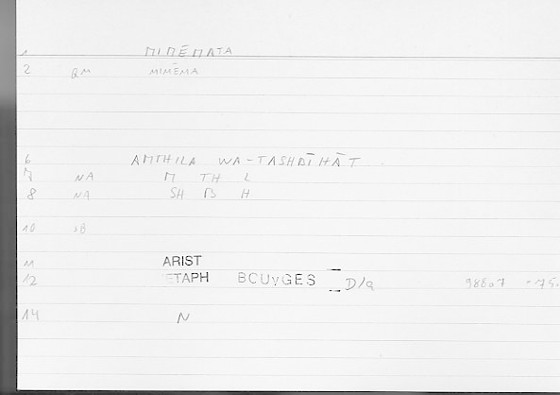 1 MIMĒMATA
2 QM MIMĒMA
6 AMTHILA WA-TASHBĪHĀT
7 NA M TH L
8 NA SH B H
10 SB
11 ARIST
12 ETAPH BCUVGES D/a
14 N